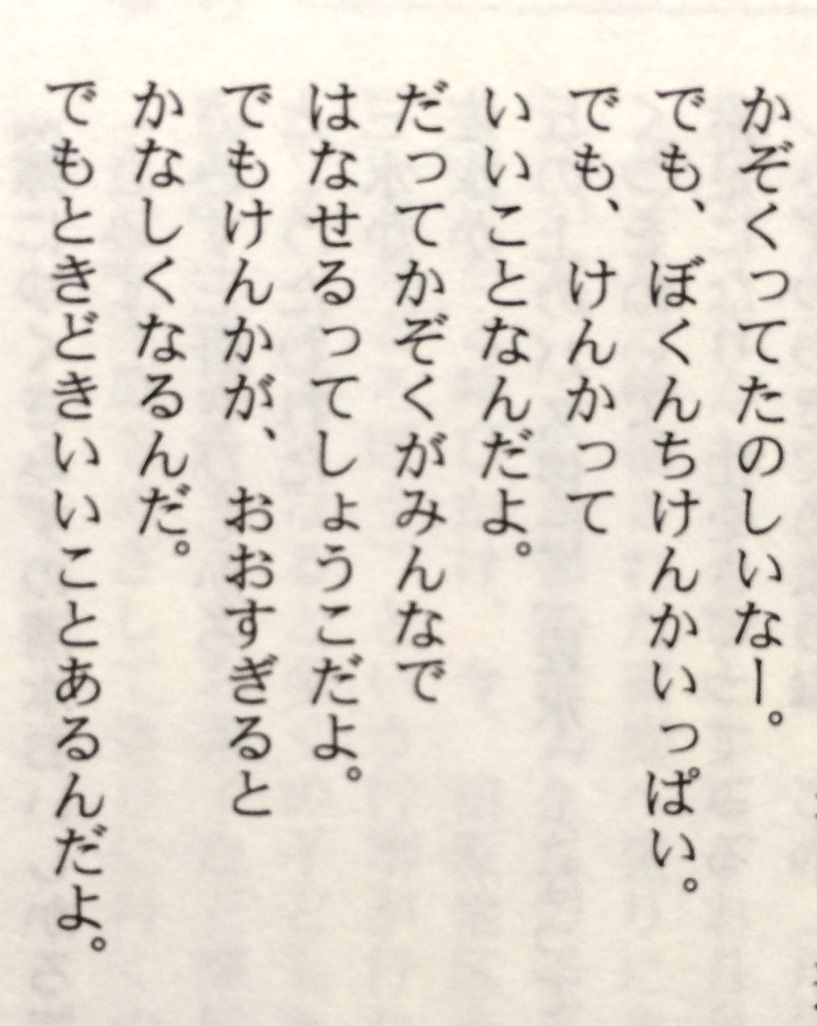 かぞくってたのしいなー。
でも、ぼくんちけんかいっぱい。
でも、けんかって
いいことなんだよ。
だってかぞくがみんなで
はなせるってしょうこだよ。
でもけんかが、おおすぎると
かなしくなるんだ。
でもときどきいいことあるんだよ。